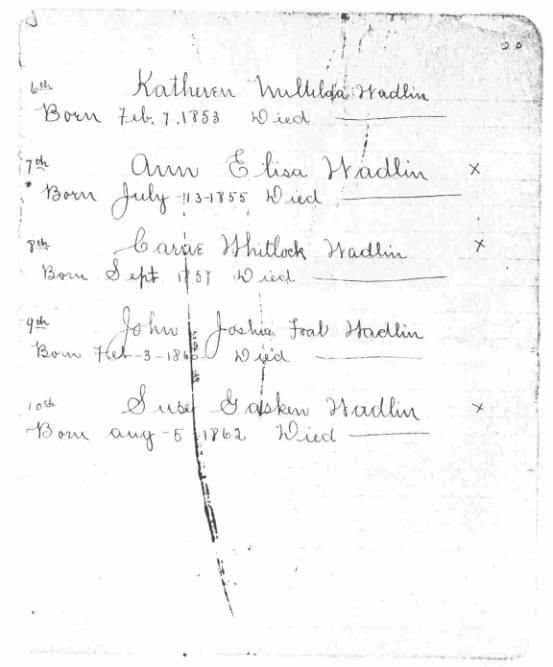 6th Katheren Multilda Wadlin
Born Feb. 7. 1853 Died
7th Ann Elisa Wadlin x
Born July 13-1855 Died
8th Carrie Whitlock Wadlin x
Born Sept 1857 Died
9th John Joshua Foal Wadlin
Born Feb-3-186 Died
10th Susey Gasken Wadlin x
Born aug-5 1862 Died